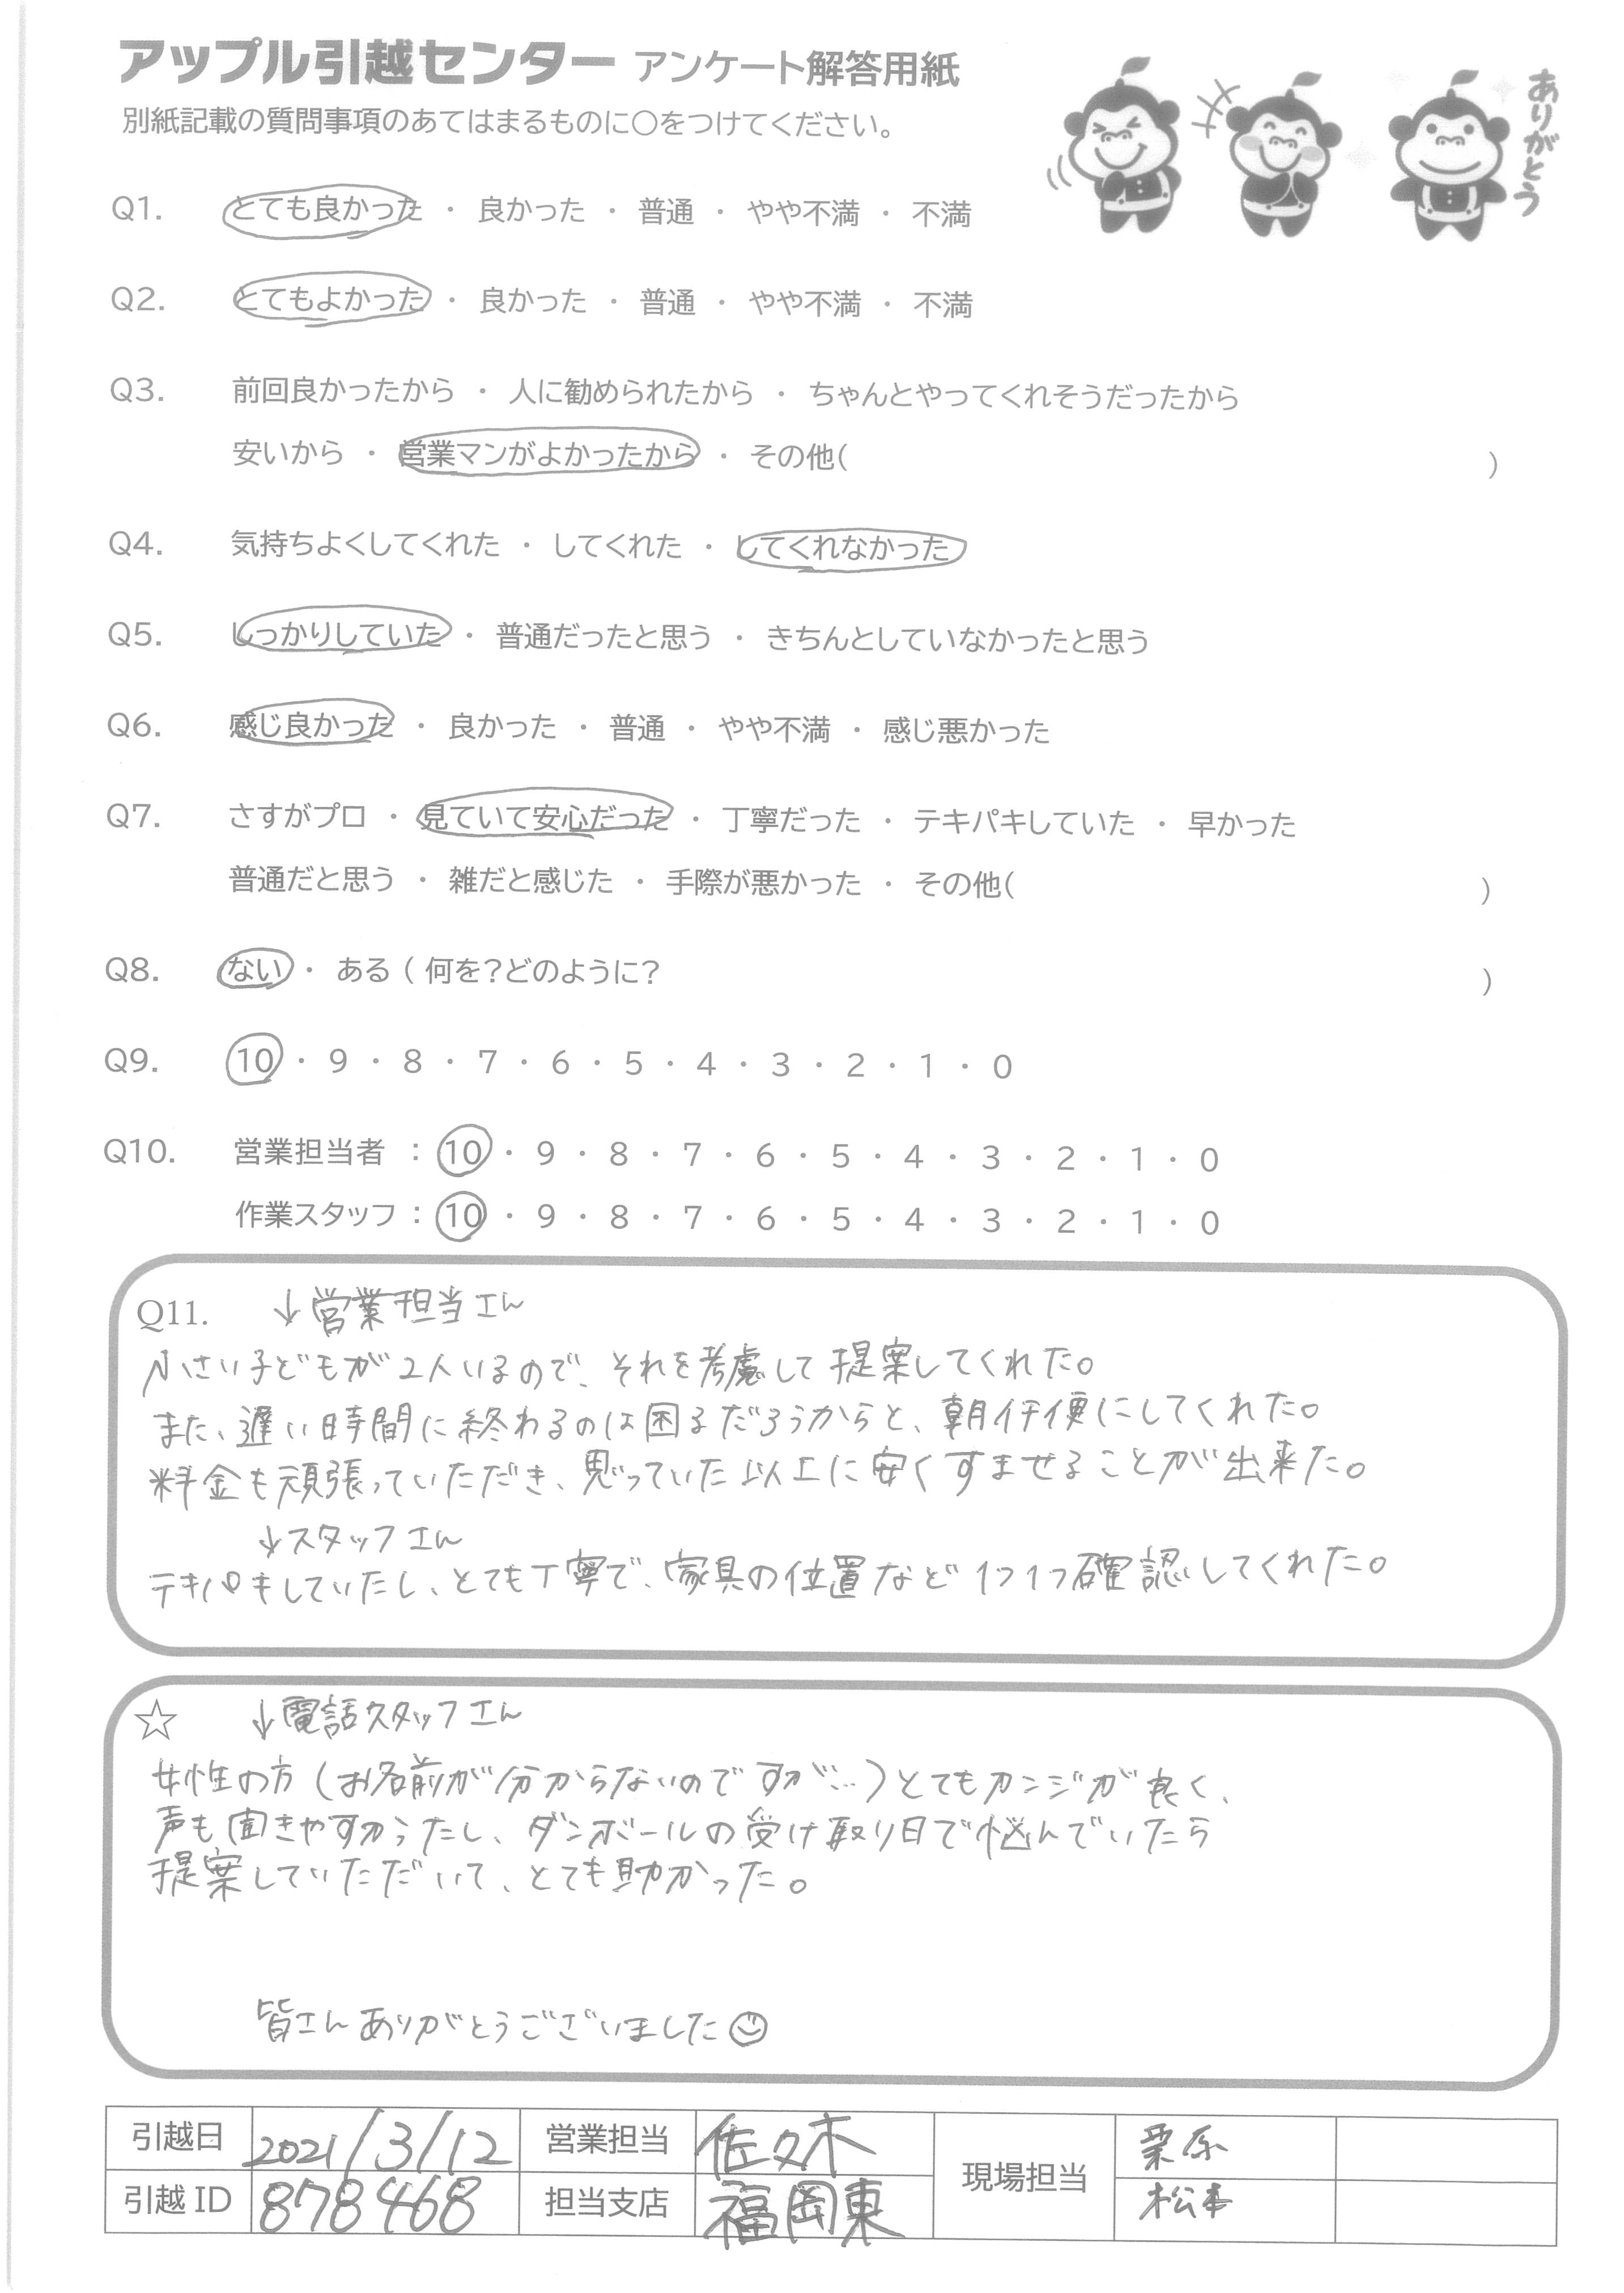 アップル引越センター アンケート解答用紙
別紙記載の質問事項のあてはまるものに○をつけてください。
ありがとう
Q1. とても良かった ・ 良かった ・ 普通 ・ やや不満 ・ 不満
Q2. とてもよかった ・ 良かった ・ 普通 ・ やや不満 ・ 不満
Q3. 前回良かったから ・ 人に勧められたから ・ ちゃんとやってくれそうだったから
安いから ・ 営業マンがよかったから ・ その他( )
Q4. 気持ちよくしてくれた ・ してくれた ・ してくれなかった
Q5. しっかりしていた ・ 普通だったと思う ・ きちんとしていなかったと思う
Q6. 感じ良かった ・ 良かった ・ 普通 ・ やや不満 ・ 感じ悪かった
Q7. さすがプロ ・ 見ていて安心だった ・ 丁寧だった ・ テキパキしていた ・ 早かった
普通だと思う ・ 雑だと感じた ・ 手際が悪かった ・ その他( )
Q8. ない ・ ある ( 何を?どのように? )
Q9. 10 ・ 9 ・ 8 ・ 7 ・ 6 ・ 5 ・ 4 ・ 3 ・ 2 ・ 1 ・ 0
Q10. 営業担当者 : 10 ・ 9 ・ 8 ・ 7 ・ 6 ・ 5 ・ 4 ・ 3 ・ 2 ・ 1 ・ 0
作業スタッフ : 10 ・ 9 ・ 8 ・ 7 ・ 6 ・ 5 ・ 4 ・ 3 ・ 2 ・ 1 ・ 0
Q11. ↓営業担当さん
小さい子どもが2人いるので、それを考慮して提案してくれた。
また、遅い時間に終わるのは困るだろうからと、朝イチ便にしてくれた。
料金も頑張っていただき、思っていた以上に安くすませることが出来た。
↓スタッフさん
テキパキしていたし、とても丁寧で、家具の位置など1つ1つ確認してくれた。
☆ ↓電話スタッフさん
女性の方(お名前が分からないのですが…)とてもカンジが良く、
声も聞きやすかったし、ダンボールの受け取り日で悩んでいたら
提案していただいて、とても助かった。
皆さんありがとうございました☺
引越日 2021/3/12 営業担当 佐々木 現場担当 栗原
引越ID 878468 担当支店 福岡東 松本